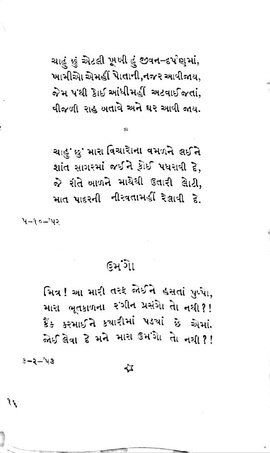 ચાહું છું એટલી ખૂબી હું જીવન-દર્પણમાં,
ખામીઓ એમહીં પોતાની, નજર આવી જાય,
જેમ પંથી કોઈ આંધીમહીં અટવાઈ જતાં,
વીજળી રાહ બતાવે અને ઘર આવી જાય.
*
ચાહું છું મારા વિચારોના વમળને લઈને
શાંત સાગરમાં જઈને કોઈ પધરાવી દે,
જે રીતે બાળને માથેથી ઉતારી લોટી,
માત પાદરની નીરવતામહીં રેલાવી દે.
૫-૧૦-'૫૨
ઉમંગો
મિત્ર! આ મારી તરફ જોઈને હસતાં પુષ્પો,
મારા ભૂતકાળના રંગીન પ્રસંગો તો નથી?!
કૈંક કરમાઈને કયારીમાં પડયાં છે એમાં.
જોઈ લેવા દે મને મારા ઉમંગો તો નથી?!
૬-૨-'૫૩
૧૬